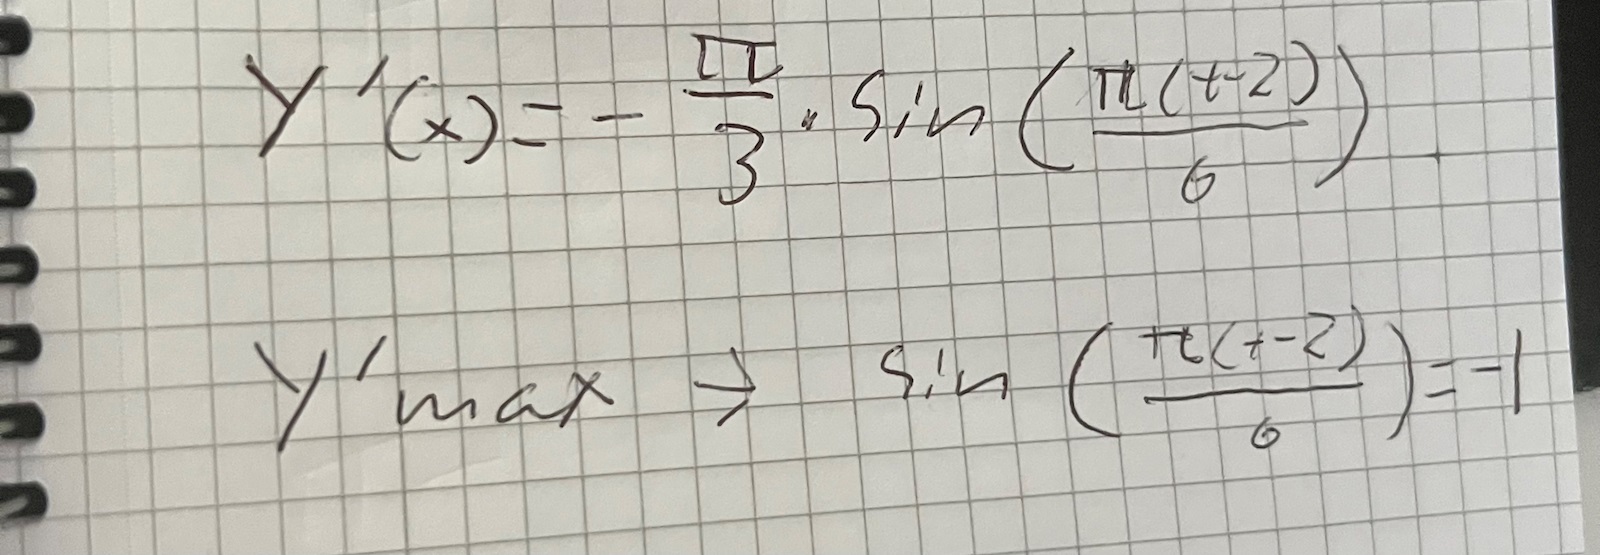 Y'(x) = - π/3 · Sin (π(t-2)/6)
Y'max → Sin (π(t-2)/6) = -1